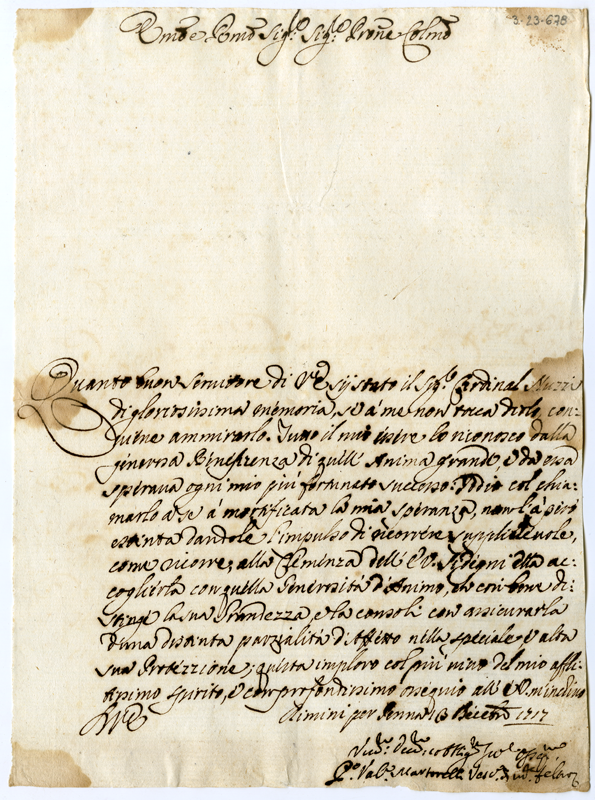 3-23-678
Emo e Rmo Sig.r Sig.r Prone Colmo
Quanto buon Servitore di V.E. sij stato il Sig.r Cardinal Nuzzi
di gloriosissima memoria, se à me non tocca dirlo, con:
viene ammirarlo. Tutto il mio essere lo riconosco dalla
generosa Beneficenza di quell' Anima grande, e da essa
sperava ogni mio più fortunato successo: Iddio col chia:
marlo a sè à mortificata la mia speranza, non l'à però
estinta dandole l'impulso di ricorrere supplichevole,
come ricorre, alla Clemenza dell' E.V. Si degni ella ac:
coglierla con quella Generosità d'Animo, che così bene di:
stingue la sua Grandezza, e la consoli con assicurarla
d'una distinta parzialità d'Affetto nella speciale, e alta
sua Protezzione; questa imploro col più vivo del mio affli:
tissimo spirito, e con profondissimo ossequio all' E.V. m'inchino
Di V.E.
Rimini per Penna 13 Decembre 1717
Martorelli